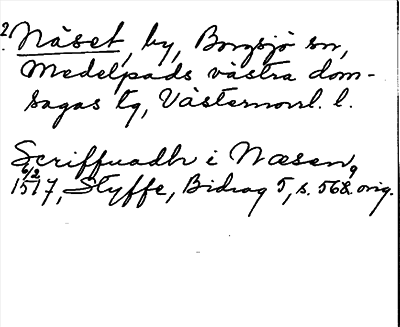 2. Näset, by, Borgsjö sn,
Medelpads västra dom-
sagas tg, Västernorrl. l.
Scriffuadh i Næsen,
6/2 1517, Styffe, Bidrag 5, s. 568. orig.